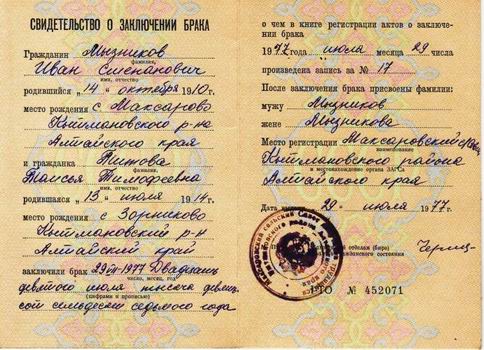 СВИДЕТЕЛЬСТВО О ЗАКЛЮЧЕНИИ БРАКА
Гражданин Мызников
фамилия,
Иван Степанович
имя, отчество
родившийся „14" октября 1910г.
место рождения с Максарово
Кытмановского р-на
Алтайского края
и гражданка Титова
фамилия,
Таисья Тимофеевна
имя, отчество
родившаяся „13" июля 1914г.
место рождения с Зорниково
Кытмановский р-н
Алтайский край
заключили брак 29-VII-1977 Двадцать
число, месяц, год
девятого июля тысяча девять
(цифрами и прописью)
сот семьдесят седьмого года
о чем в книге регистрации актов о заключе-
нии брака
1977 года июля месяца 29 числа
произведена запись за № 17
После заключения брака присвоены фамилии:
мужу Мызников
жене Мызникова
Место регистрации Максаровский
наименование
Кытмановского района
и местонахождение органа ЗАГСа
Алтайского края
Дата 29 июля 1977г.
отделам (бюро)
гражданского состояния
№ 452071